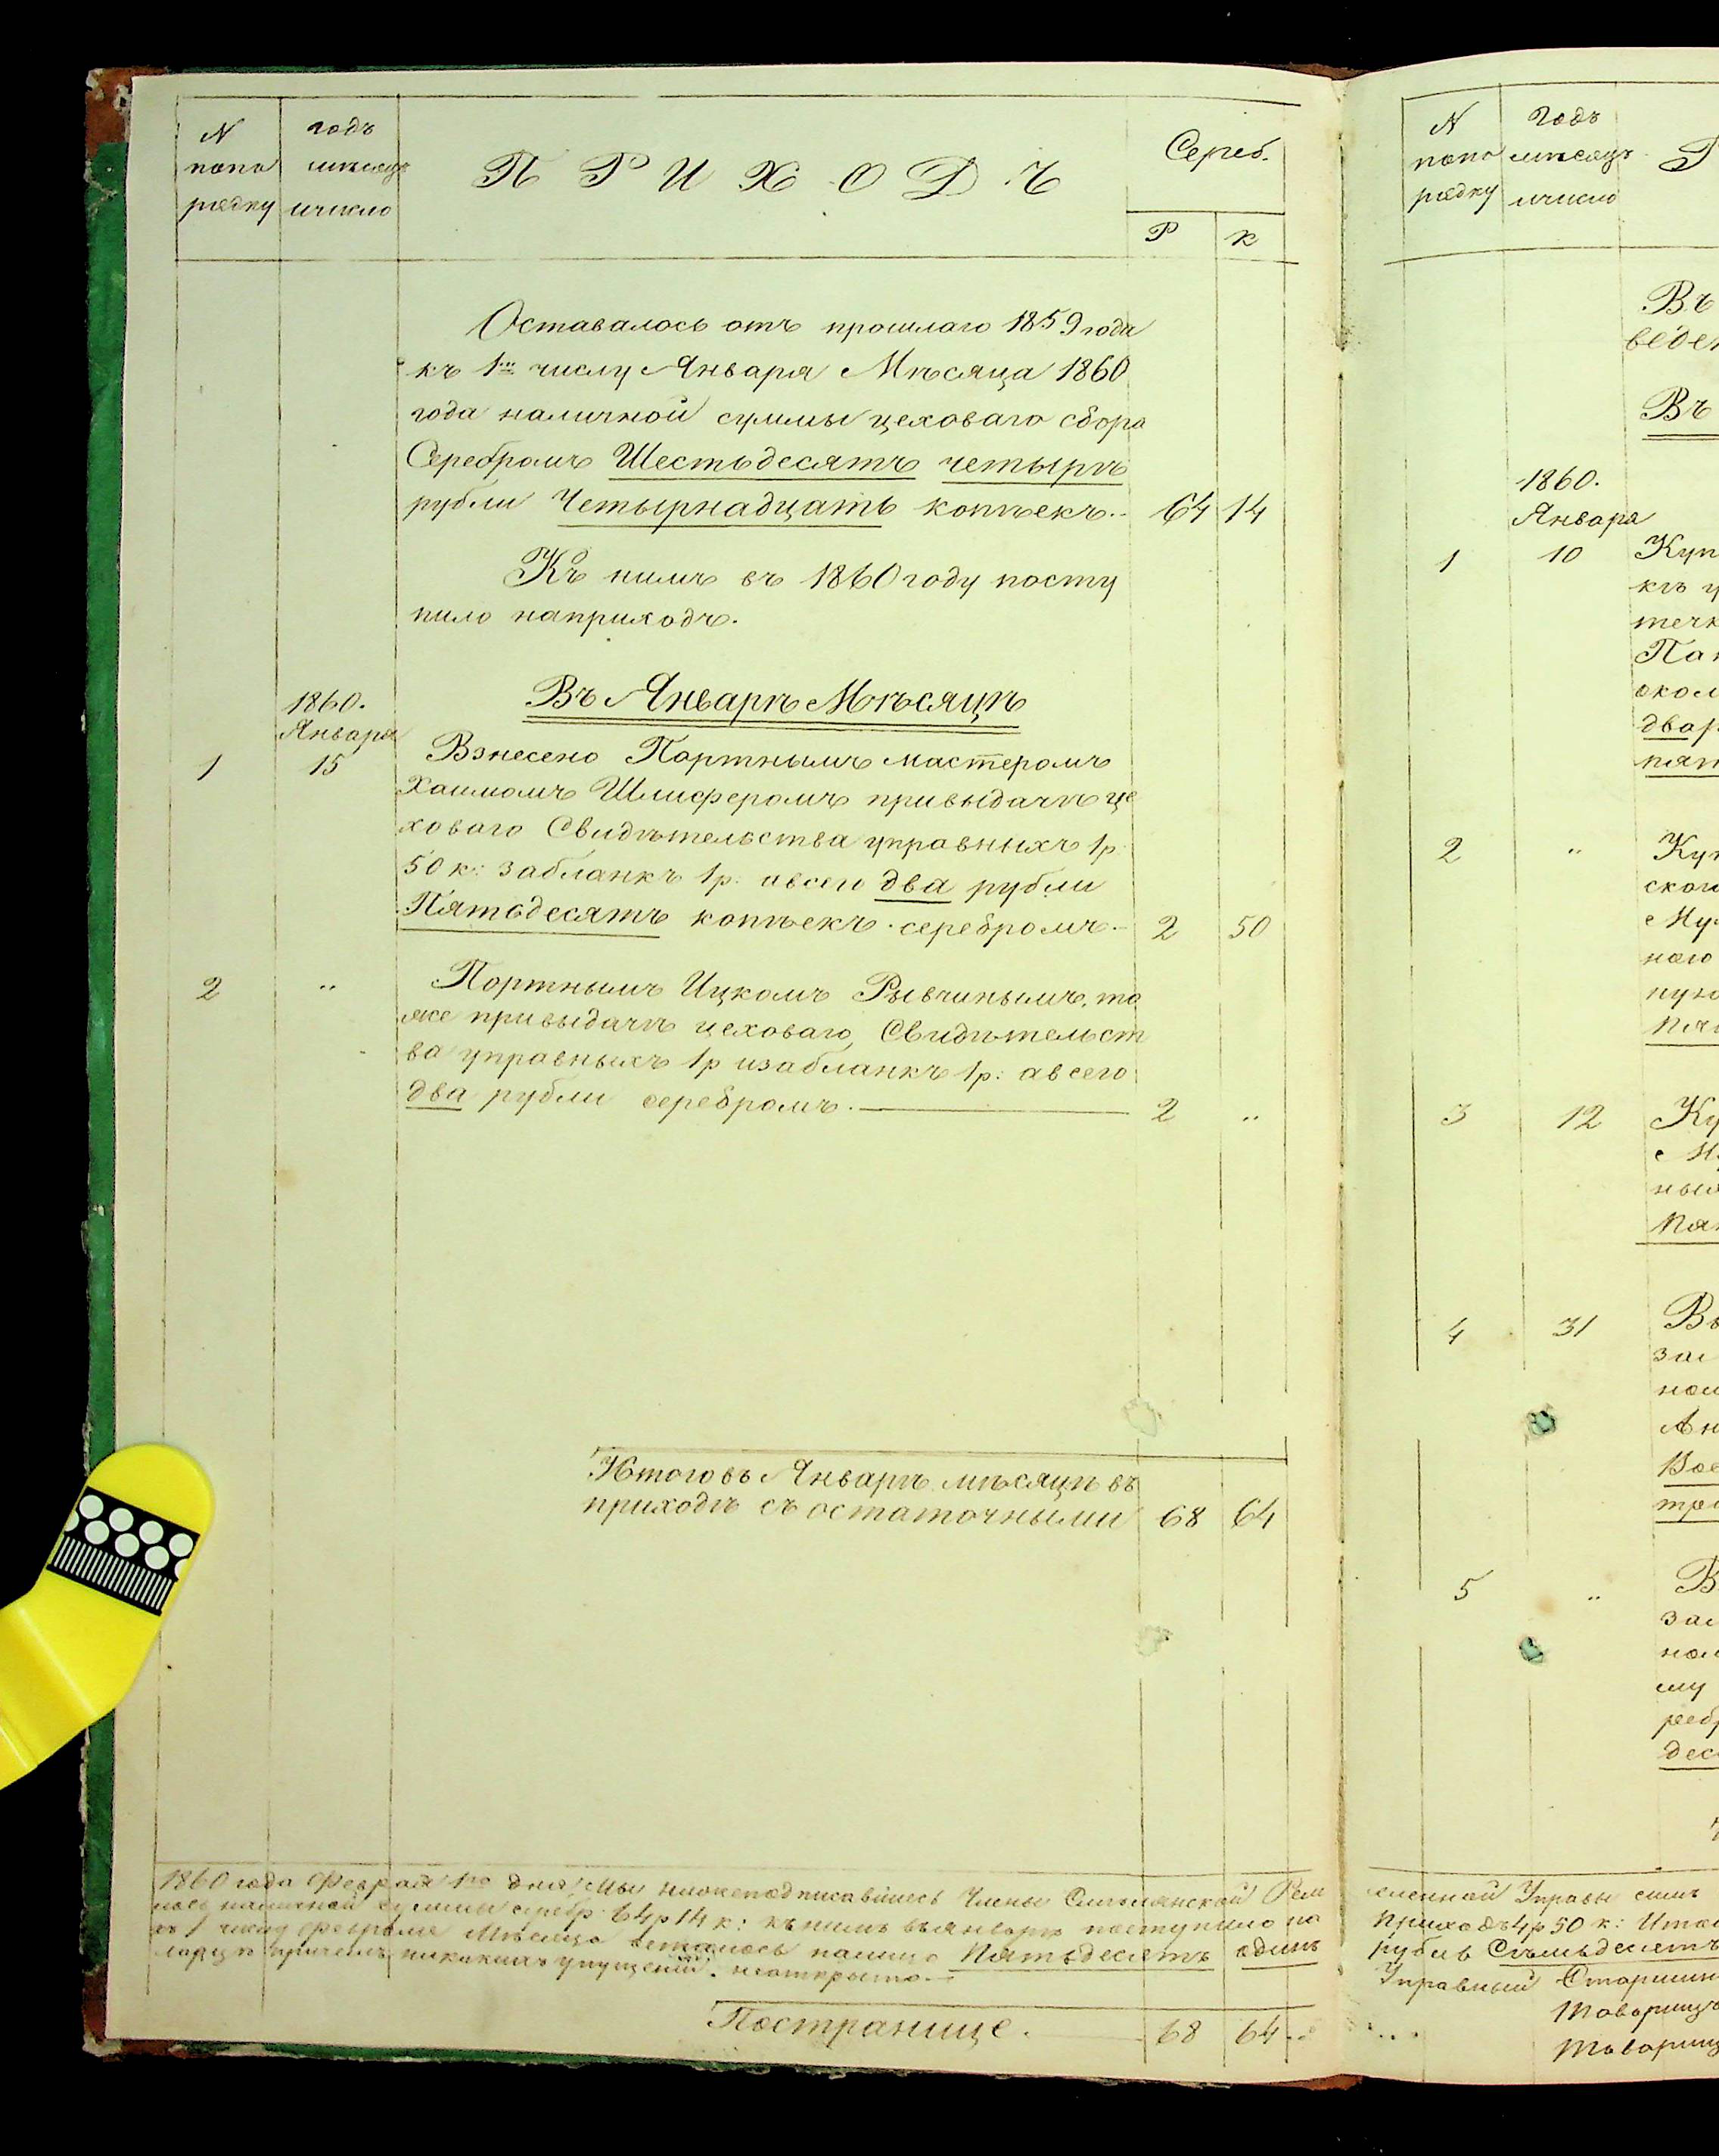 N
попо
рядку
годъ
мѣсяцъ
ичисло
ПРИХОДЪ
Сереб.
Р
К
Оставалось отъ прошлаго 1859 года
къ 1му числу Января Мѣсяца 1860
года наличной суммы цеховаго сбора
Серебромъ Шестьдесятъ четырѣ
рубли Четырнадцать копѣекъ. 64 14
Къ нимъ въ 1860 году посту
пило наприходъ.
Въ Январѣ Мѣсяцѣ
1860.
Января
1 15 Взнесено Портнымъ мастеромъ
Хаимомъ Шлиферомъ привыдачѣ це
ховаго Свидѣтельства управныхъ 1р.
50 к: забланкъ 1р: авсего два рубли
Пятьдесятъ копѣекъ серебромъ. 2 50
2 " Портнымъ Ицкомъ Рывчинымъ, та
кже привыдачѣ цеховаго Свидѣтельст
ва управныхъ 1р изабланкъ 1р: авсего
два рубли серебромъ. 2 "
Итого въ Январѣ мѣсяцѣ въ
приходѣ съ остаточными 68 64
1860 года Февраля 1го дня Мы нижеподписавшиеся Члены Реме
наличной суммы серебр. 64р 14к: къ нимъ въ январѣ поступило на
къ 1 числу февраля Мѣсяца осталось налицо Пятьдесятъ одинъ
причемъ никакихъ упущений неоткрыто.
Постранице. 68 64
N
попо
рядку
Годъ
мѣсяцъ
ичисло
Въ
веден
Въ
1860.
Января
1 10 Куп
къ у
течк
Пан
окол
двар
пят
2 " Куп
ског
Му
ного
пуз
Пят
3 12 Ку
ны
Пя
4 31 Въ
за
ном
Ан
Вос
тре
5 " В
за
ном
му
реб
дес
сленной Управы симъ
приходъ 4р 50 к: Итого
рубль Семьдесятъ
Управный Старшин
Товарищъ
Товарищ